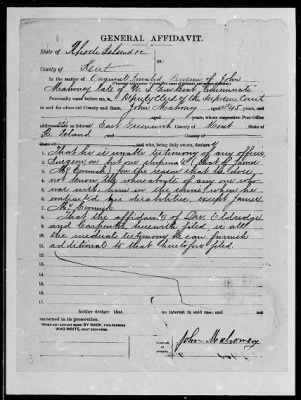 GENERAL AFFIDAVIT.
State of Rhode Island sc
County of Kent
In the matter of Original Invalid Pension of John
Mahoney late of U. S. Gunboat "Cincinnati"
Personally came before me, a Deputy Clerk of the Supreme Court
County and State, John Mahoney aged 45 years,
whose Post Office
address is East Greenwich County of Kent
R. Island
who, being duly sworn, declare
That he is unable testimony of any officer,
Surgeon or but one shipmate (that of James
McCormick) for the reason that he does
not know the whereabouts of any one who
was with him in the service when he
contracted his disabilities, except James
McCormick
That the affidavits of Drs. Eldredge
and Carpenter herewith filed, is all
the medical testimony he can furnish
additional to that heretofore filed.
further declare that no interest in said case and not
concerned in its prosecution.
WHEN ANY AFFIANT SIGNS BY MARK, TWO PERSONS
WHO WRITE, MUST SIGN HERE.
John Mahoney